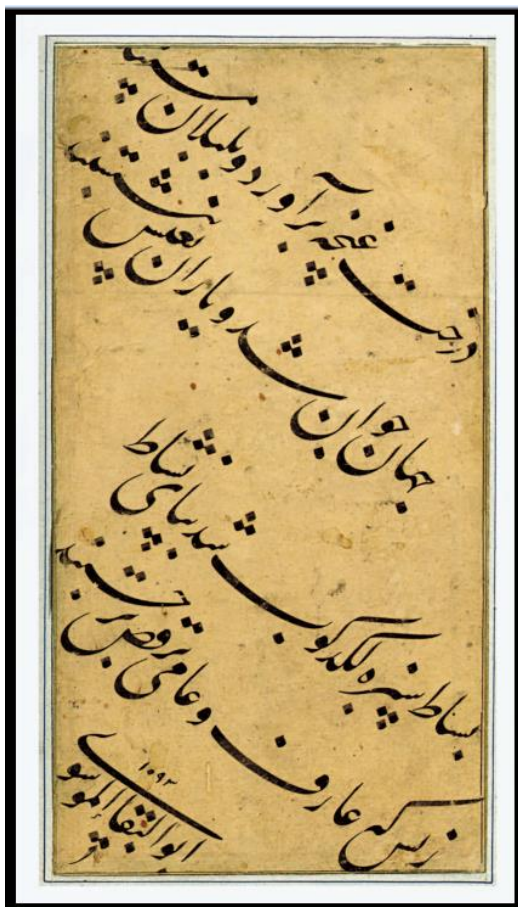 درخت غنچه برآورد و بلبلان مستند
جهان جوان شد و یاران بعیش بنشستند
بساط سبزه لگدکوب شد بپای نشاط
ز بس که عارف و عامی برقص برجستند
ابوالبقا الموسوی ۱۰۹۲